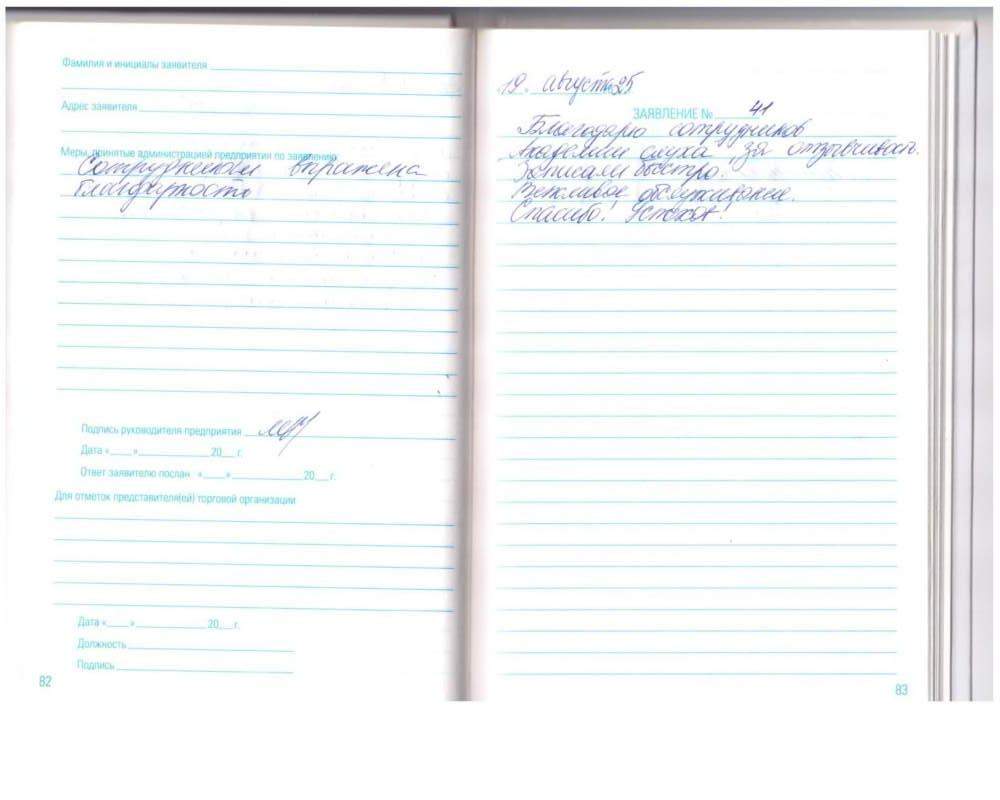 Фамилия и инициалы заявителя
Адрес заявителя
Меры, принятые администрацией предприятия по заявлению
Сотрудникам выражена
благодарность
Подпись руководителя предприятия
Дата «____»____________ 20___ г.
Ответ заявителю послан «____»____________ 20___ г.
Для отметок представителя(ей) торговой организации
Дата «____»____________ 20___ г.
Должность
Подпись
82
19. август 25
ЗАЯВЛЕНИЕ № 41
Благодарю сотрудников
Академии слуха за отзывчивость.
Записали быстро.
Вежливое обслуживание.
Спасибо! Успехов!
83